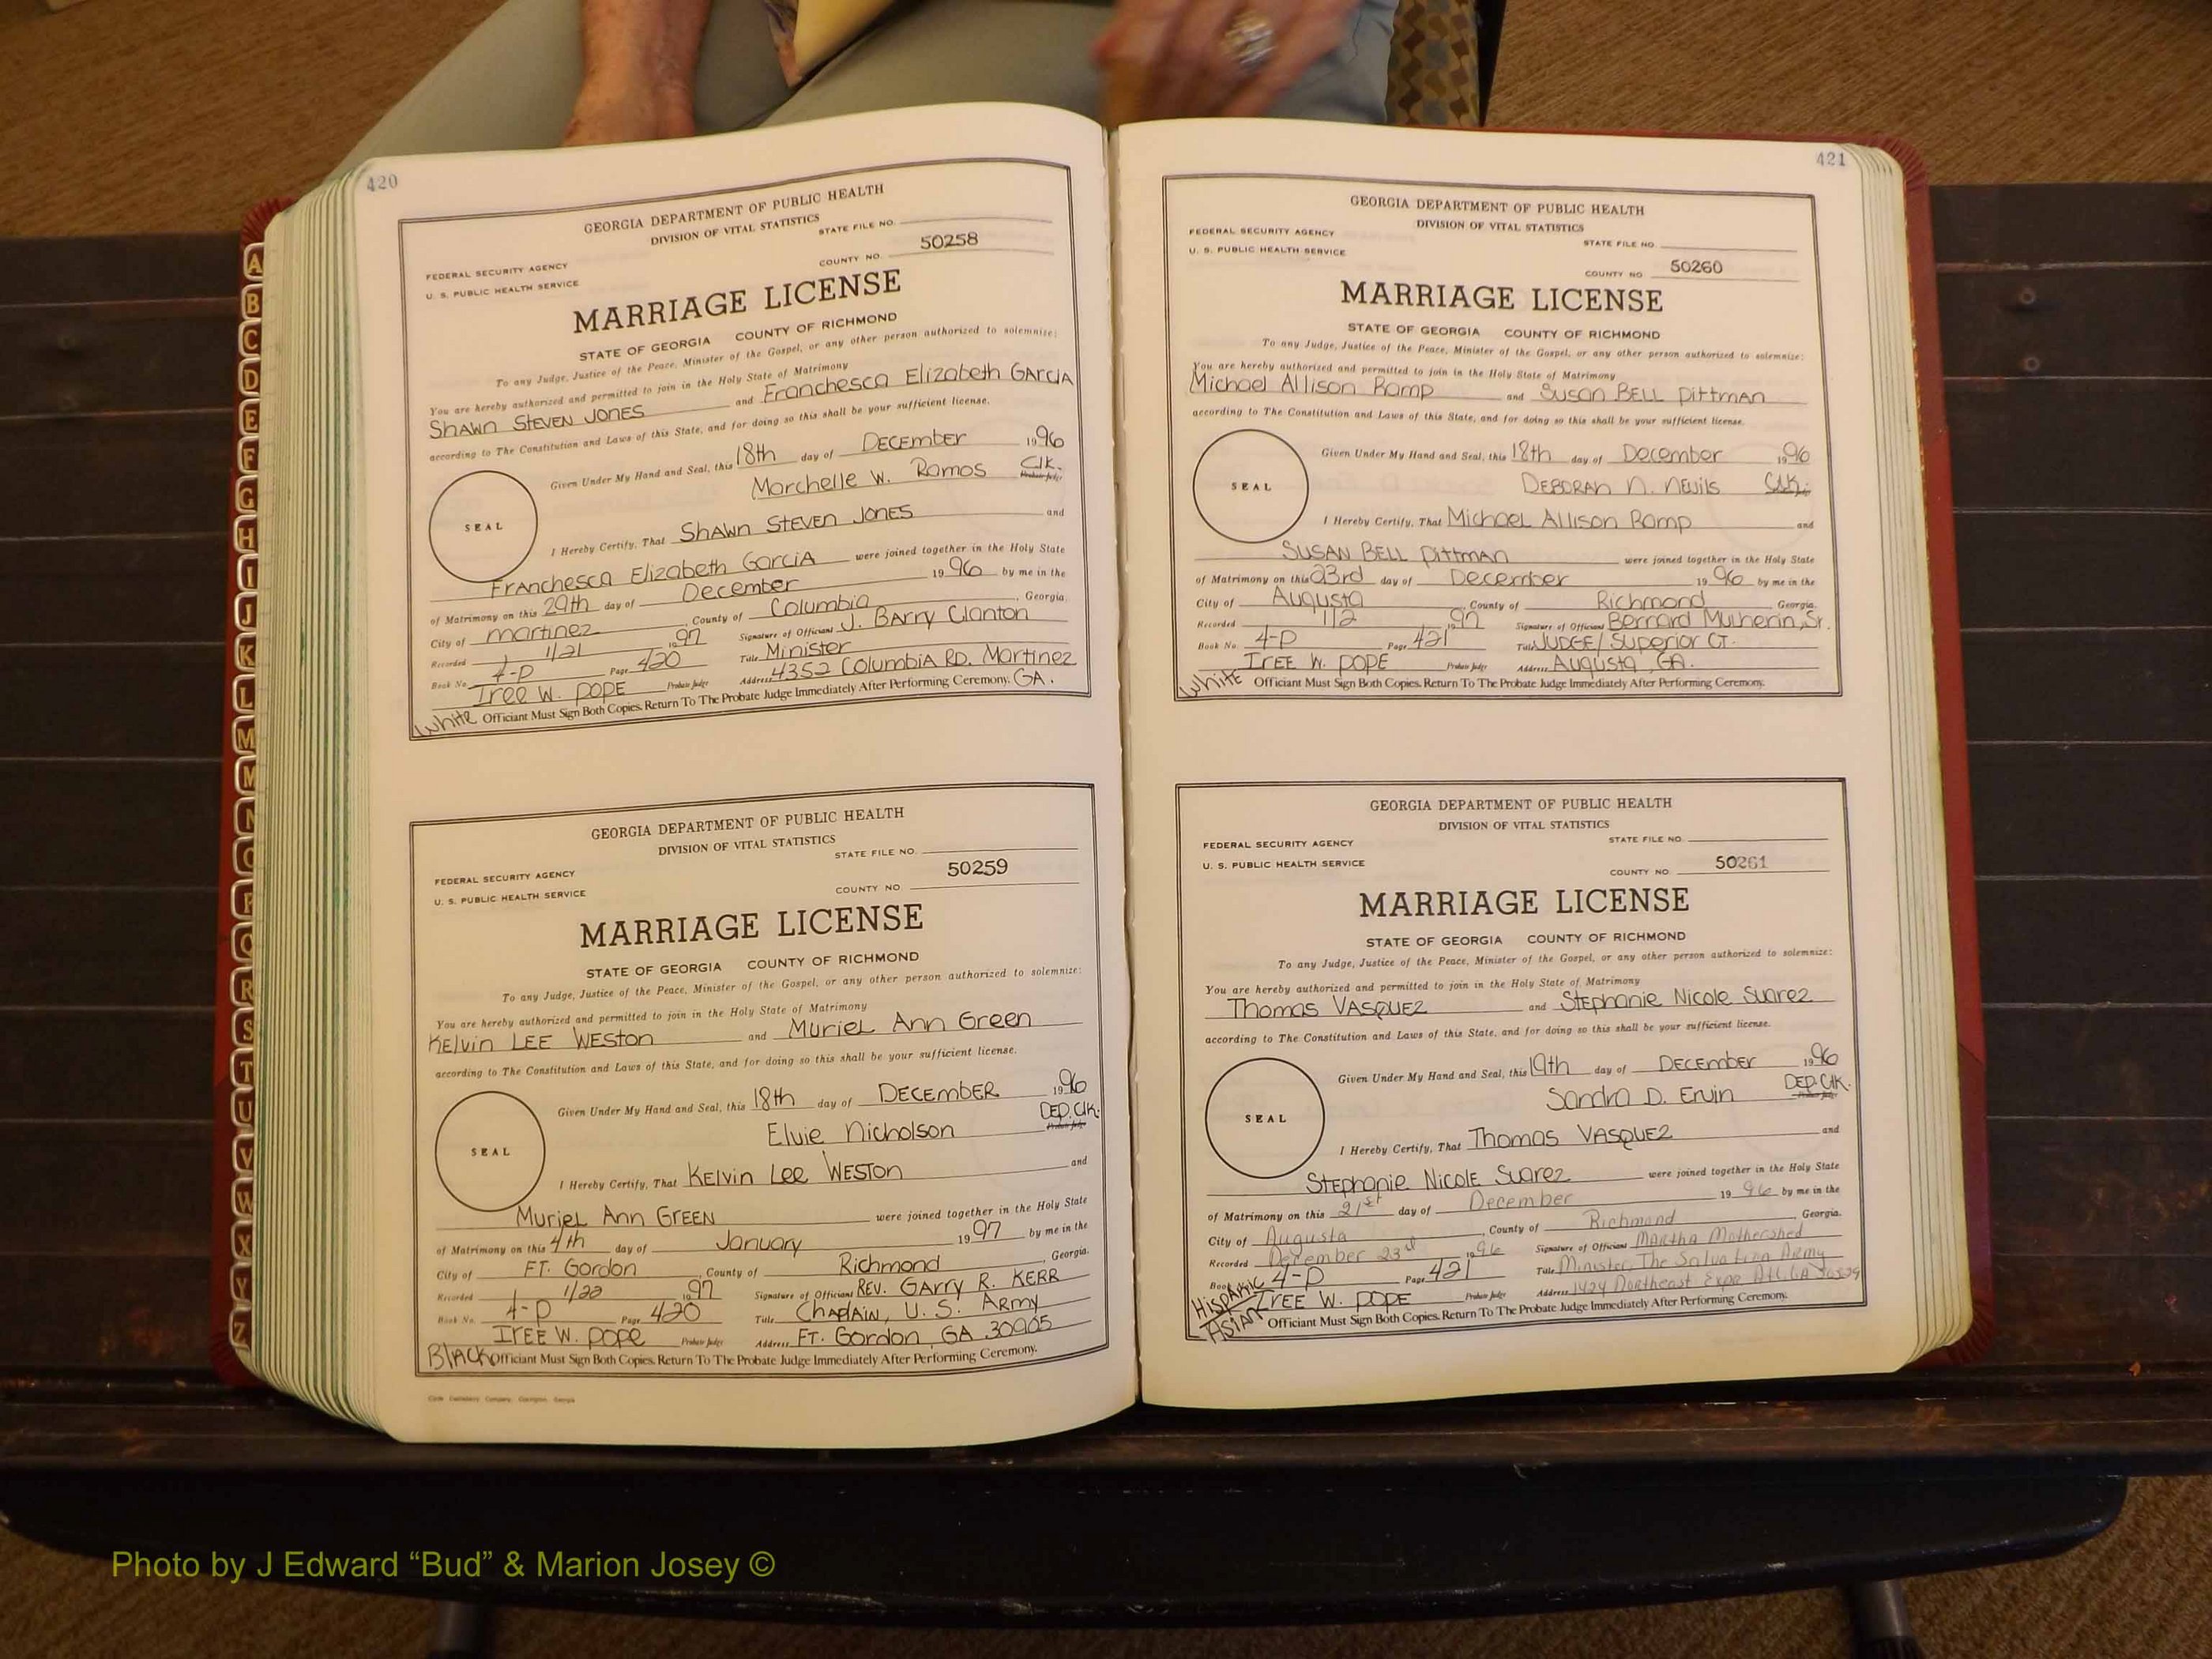 420
GEORGIA DEPARTMENT OF PUBLIC HEALTH
DIVISION OF VITAL STATISTICS
STATE FILE NO.
FEDERAL SECURITY AGENCY
U. S. PUBLIC HEALTH SERVICE
COUNTY NO. 50258
MARRIAGE LICENSE
STATE OF GEORGIA COUNTY OF RICHMOND
To any Judge, Justice of the Peace, Minister of the Gospel, or any other person authorized to solemnize:
You are hereby authorized and permitted to join in the Holy State of Matrimony
SHAWN STEVEN JONES and Franchesca Elizabeth GARCIA
according to The Constitution and Laws of this State, and for doing so this shall be your sufficient license.
Given Under My Hand and Seal, this 18th day of DECEMBER 1996
Marchelle W. Ramos Clk. Probate Judge
SEAL
I Hereby Certify, That SHAWN STEVEN JONES and
Franchesca Elizabeth GARCIA were joined together in the Holy State
of Matrimony on this 29th day of December 1996 by me in the
City of Martinez, County of Columbia, Georgia.
Recorded 1/21 1997 Signature of Officiant J. BARRY Clanton
Book No. 4-P Page 420 Title Minister
IREE W. POPE Probate Judge Address 4352 COLUMBIA RD. Martinez
White Officiant Must Sign Both Copies. Return To The Probate Judge Immediately After Performing Ceremony. GA.
GEORGIA DEPARTMENT OF PUBLIC HEALTH
DIVISION OF VITAL STATISTICS
STATE FILE NO.
FEDERAL SECURITY AGENCY
U. S. PUBLIC HEALTH SERVICE
COUNTY NO 50259
MARRIAGE LICENSE
STATE OF GEORGIA COUNTY OF RICHMOND
To any Judge, Justice of the Peace, Minister of the Gospel, or any other person authorized to solemnize:
You are hereby authorized and permitted to join in the Holy State of Matrimony
KELVIN LEE WESTON and MURIEL Ann Green
according to The Constitution and Laws of this State, and for doing so this shall be your sufficient license.
Given Under My Hand and Seal, this 18th day of DECEMBER 1996
Elvie Nicholson DEP. Clk. Probate Judge
SEAL
I Hereby Certify, That KELVIN LEE WESTON and
MURIEL Ann GREEN were joined together in the Holy State
of Matrimony on this 4th day of January 1997 by me in the
City of FT. Gordon, County of Richmond, Georgia.
Recorded 1/22 1997 Signature of Officiant REV. GARRY R. KERR
Book No. 4-P Page 420 Title CHAPLAIN, U. S. ARMY
IREE W. POPE Probate Judge Address FT. Gordon, GA 30905
BLACK Officiant Must Sign Both Copies. Return To The Probate Judge Immediately After Performing Ceremony.
421
GEORGIA DEPARTMENT OF PUBLIC HEALTH
DIVISION OF VITAL STATISTICS
FEDERAL SECURITY AGENCY
STATE FILE NO
U. S. PUBLIC HEALTH SERVICE
COUNTY NO 50260
MARRIAGE LICENSE
STATE OF GEORGIA COUNTY OF RICHMOND
To any Judge, Justice of the Peace, Minister of the Gospel, or any other person authorized to solemnize:
You are hereby authorized and permitted to join in the Holy State of Matrimony
Michael Allison Ramp and SUSAN BELL PITTMAN
according to The Constitution and Laws of this State, and for doing so this shall be your sufficient license.
Given Under My Hand and Seal, this 18th day of December 1996
DEBORAH N. NEVILS Clk.
SEAL
I Hereby Certify, That Michael Allison Ramp and
SUSAN BELL PITTMAN were joined together in the Holy State
of Matrimony on this 23rd day of December 1996 by me in the
City of Augusta, County of Richmond Georgia.
Recorded 1/2 1997 Signature of Officiant Bernard Mulherin, Sr.
Book No. 4-P Page 421 Title JUDGE/ SUPERIOR CT.
IREE W. POPE Probate Judge Address Augusta, GA.
White Officiant Must Sign Both Copies. Return To The Probate Judge Immediately After Performing Ceremony.
GEORGIA DEPARTMENT OF PUBLIC HEALTH
DIVISION OF VITAL STATISTICS
FEDERAL SECURITY AGENCY
STATE FILE NO
U. S. PUBLIC HEALTH SERVICE
COUNTY NO. 50261
MARRIAGE LICENSE
STATE OF GEORGIA COUNTY OF RICHMOND
To any Judge, Justice of the Peace, Minister of the Gospel, or any other person authorized to solemnize:
You are hereby authorized and permitted to join in the Holy State of Matrimony
Thomas VASQUEZ and Stephanie Nicole Suarez
according to The Constitution and Laws of this State, and for doing so this shall be your sufficient license.
Given Under My Hand and Seal, this 19th day of DECEMBER 1996
Sandra D. Ervin DEP. Clk. Probate Judge
SEAL
I Hereby Certify, That Thomas VASQUEZ and
Stephanie Nicole Suarez were joined together in the Holy State
of Matrimony on this 21st day of December 1996 by me in the
City of Augusta, County of Richmond Georgia.
Recorded December 23rd 1996 Signature of Officiant Martha Mothershed
Book No. 4-P Page 421 Title Minister, The Salvation Army
IREE W. POPE Probate Judge Address 1424 Northeast Expr. Atl. GA 30329
HISPANIC
ASIAN Officiant Must Sign Both Copies. Return To The Probate Judge Immediately After Performing Ceremony.
A
B
C
D
E
F
G
H
I
J
K
L
M
M
N
O
P
Q
R
S
T
U
V
W
X
Y
Z
Photo by J Edward “Bud” & Marion Josey ©